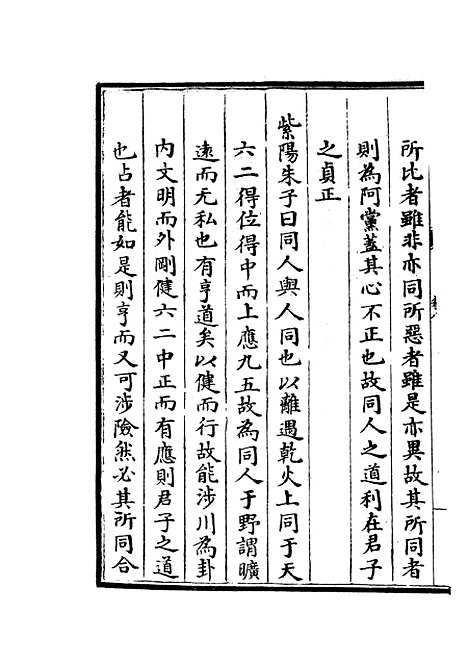 所比者雖非亦同所惡者雖是亦異故其所同者
則為阿黨蓋其心不正也故同人之道利在君子
之貞正
紫陽朱子曰同人與人同也以離遇乾火上同于天
六二得位得中而上應九五故為同人于野謂曠
遠而无私也有亨道矣以健而行故能涉川為卦
内文明而外剛健六二中正而有應則君子之道
也占者能如是則亨而又可涉險然必其所同合